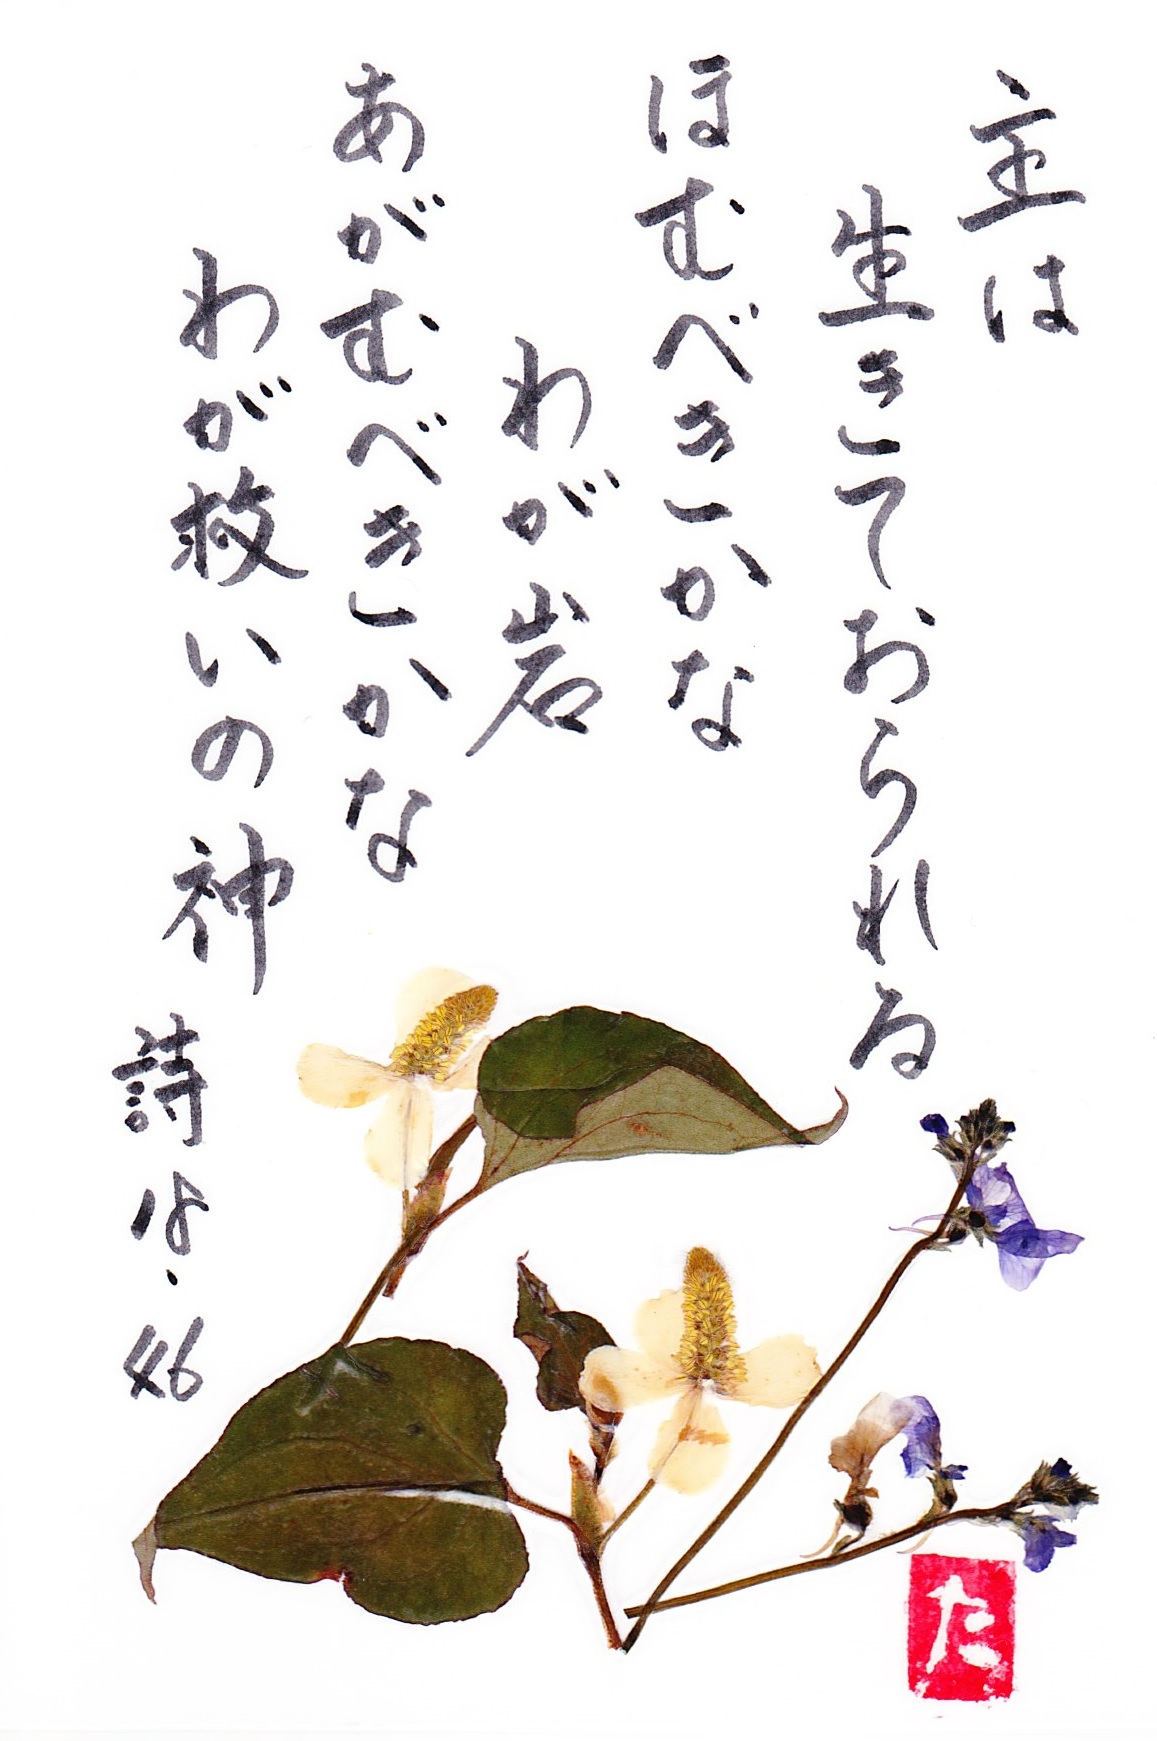 主は
生きておられる
ほむべきかな
わが岩
あがむべきかな
わが救いの神
詩18.46
た